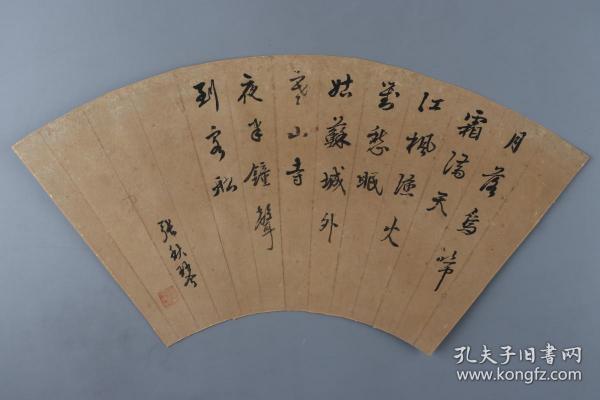 月落烏啼
霜滿天
江楓漁火
對愁眠
姑蘇城外
寒山寺
夜半鐘聲
到客船
張秋琴
孔夫子旧书网
www.kongfz.com